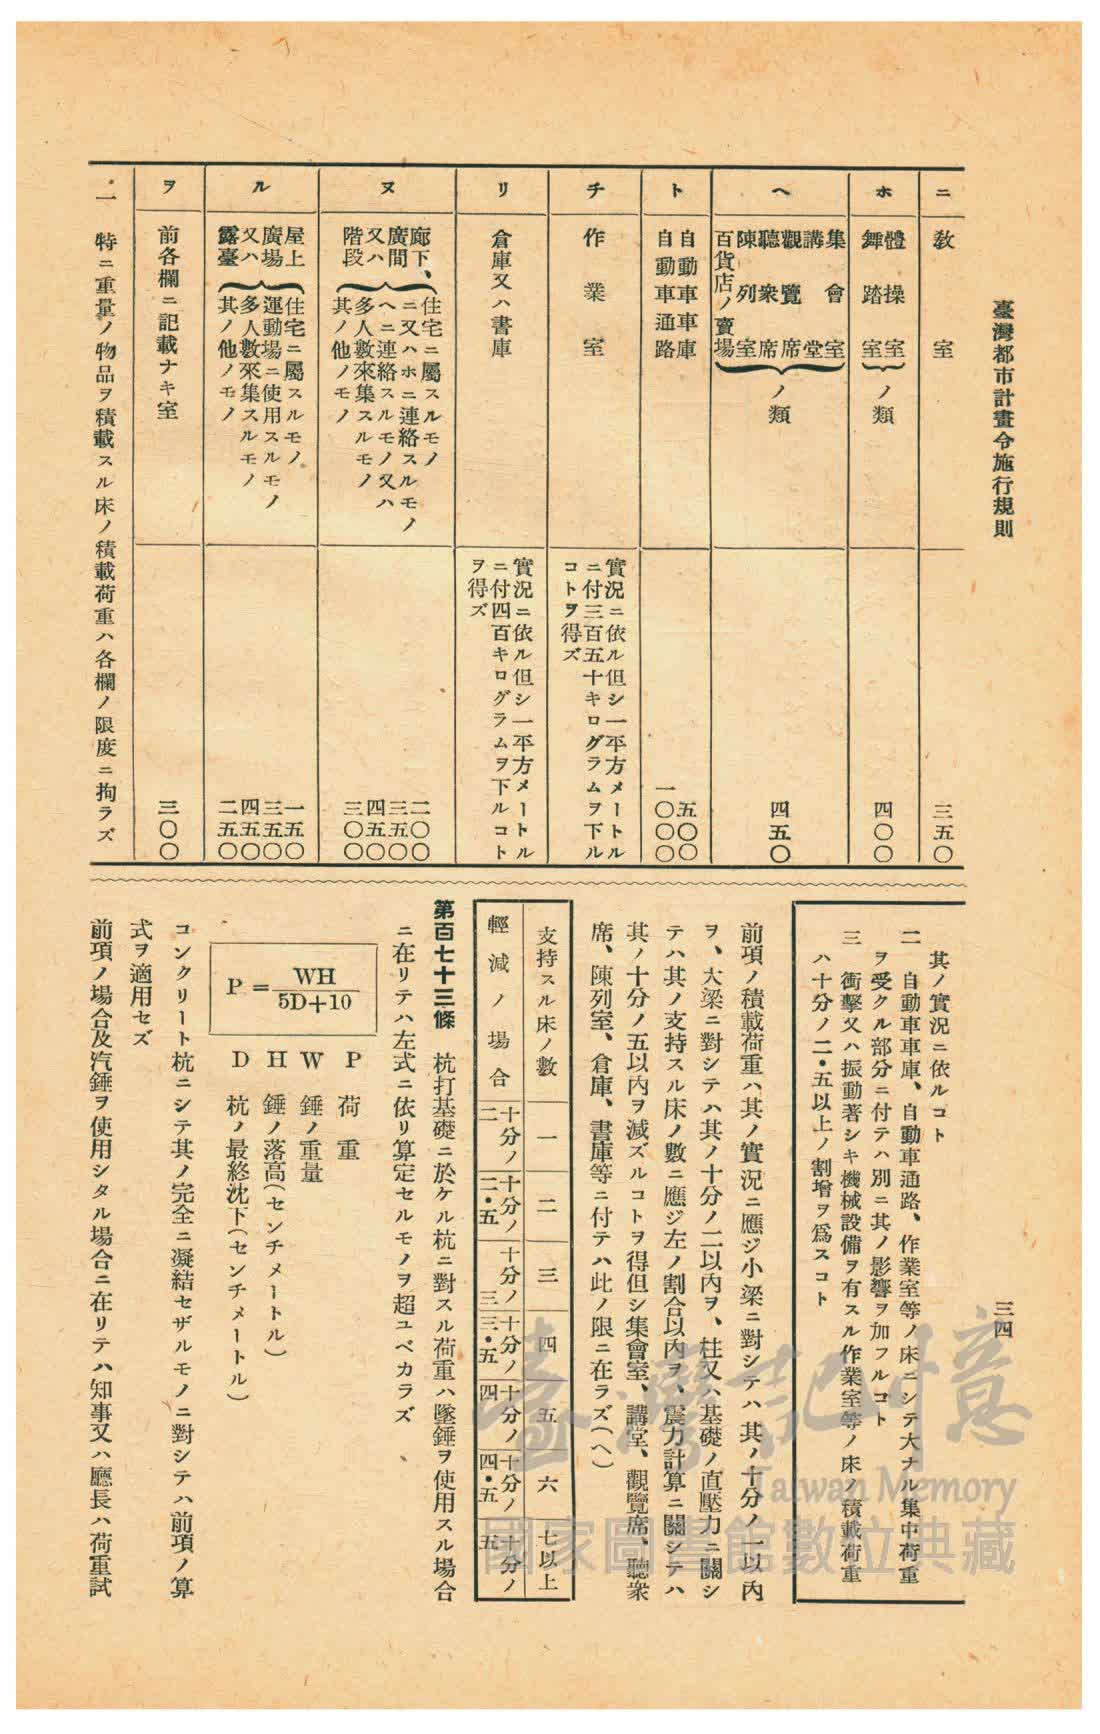 臺灣都市計畫令施行規則
三四
ニ
教室
三五〇
ホ
體操室
舞踏室
ノ類
四〇〇
ヘ
集會室
講堂
觀覽席
聽衆席
陳列室
百貨店ノ賣場
ノ類
四五〇
ト
自動車車庫
五〇〇
自動車通路
一〇〇〇
チ
作業室
實況ニ依ル但シ一平方メートル
ニ付三百五十キログラムヲ下ル
コトヲ得ズ
リ
倉庫又ハ書庫
實況ニ依ル但シ一平方メートル
ニ付四百キログラムヲ下ルコト
ヲ得ズ
ヌ
廊下、
廣間
又ハ
階段
住宅ニ屬スルモノ
ニ又ハホニ連絡スルモノ
ヘニ連絡スルモノ又ハ
多人數來集スルモノ
其ノ他ノモノ
二〇〇
三五〇
四五〇
三〇〇
ル
屋上
廣場
又ハ
露臺
住宅ニ屬スルモノ
運動場ニ使用スルモノ
多人數來集スルモノ
其ノ他ノモノ
一五〇
三五〇
四五〇
二五〇
ヲ
前各欄ニ記載ナキ室
三〇〇
一 特ニ重量ノ物品ヲ積載スル床ノ積載荷重ハ各欄ノ限度ニ拘ラズ
其ノ實況ニ依ルコト
二 自動車車庫、自動車通路、作業室等ノ床ニシテ大ナル集中荷重
ヲ受クル部分ニ付テハ別ニ其ノ影響ヲ加フルコト
三 衝擊又ハ振動著シキ機械設備ヲ有スル作業室等ノ床ノ積載荷重
ハ十分ノ二・五以上ノ割增ヲ爲スコト
前項ノ積載荷重ハ其ノ實況ニ應ジ小梁ニ對シテハ其ノ十分ノ一以內
ヲ、大梁ニ對シテハ其ノ十分ノ二以內ヲ、柱又ハ基礎ノ直壓力ニ關シ
テハ其ノ支持スル床ノ數ニ應ジ左ノ割合以內ヲ、震力計算ニ關シテハ
其ノ十分ノ五以內ヲ減ズルコトヲ得但シ集會室、講堂、觀覽席、聽衆
席、陳列室、倉庫、書庫等ニ付テハ此ノ限ニ在ラズ(ヘ)
支持スル床ノ數 一 二 三 四 五 六 七以上
輕減ノ場合 十分ノ二 十分ノ二・五 十分ノ三 十分ノ三・五 十分ノ四 十分ノ四・五 十分ノ五
第百七十三條 杭打基礎ニ於ケル杭ニ對スル荷重ハ墜錘ヲ使用スル場合
ニ在リテハ左式ニ依リ算定セルモノヲ超ユベカラズ
P = WH / 5D+10
P 荷重
W 錘ノ重量
H 錘ノ落高(センチメートル)
D 杭ノ最終沈下(センチメートル)
コンクリート杭ニシテ其ノ完全ニ凝結セザルモノニ對シテハ前項ノ算
式ヲ適用セズ
前項ノ場合及汽錘ヲ使用シタル場合ニ在リテハ知事又ハ廳長ハ荷重試
臺灣記憶
Taiwan Memory
國家圖書館數位典藏